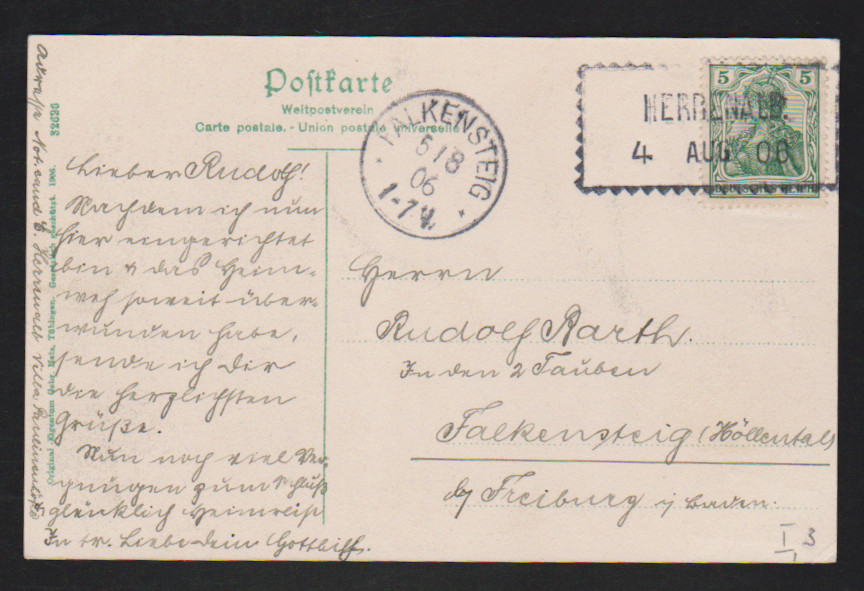 Postkarte
Weltpostverein
Carte postale. - Union postale universelle
FALKENSTEIG
5/8
06
1-7 V.
HERRENALB.
4 AUG 06
5 5
DEUTSCHES REICH
Lieber Rudolf!
Nachdem ich nun
hier eingerichtet
bin & das Heim-
weh soweit über-
wunden habe,
sende ich Dir
die herzlichsten
Grüße.
Nun noch viel Ver-
gnügen zum Schluß
glücklich Heimreise
In tr. Liebe Dein Gotthilf.
Herrn
Rudolf Barth.
In den 2 Tauben
Falkensteig (Höllental)
b/ Freiburg i/ Baden.
I, 3
Adresse Not. cand B. Herrenalb Villa
32626
Original Eigentum Gebr. Metz, Tübingen. Gesetzlich geschützt. 1906.